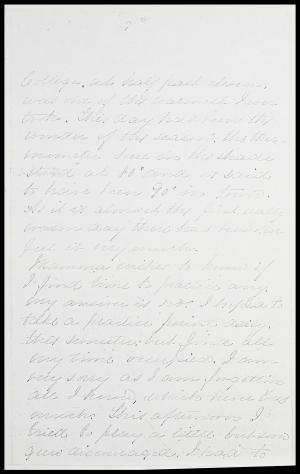 College, at half past eleven,
was one of the warmest I ever
took. This day has been the
warmest of this season, the ther-
mometer here in the shade
stood at 80° and is said
to have been 90° in town.
As it is almost the first really
warm day there has been, we
feel it very much.
Mamma wishes to know if
I find time to practice any.
my answer is no. I hoped to
take a practice period daily
this semester, but find all
my time occupied. I am
very sorry as I am forgetting
all I knew, which never was
much. This afternoon I
tried to play a little but soon
grew discouraged. I had to